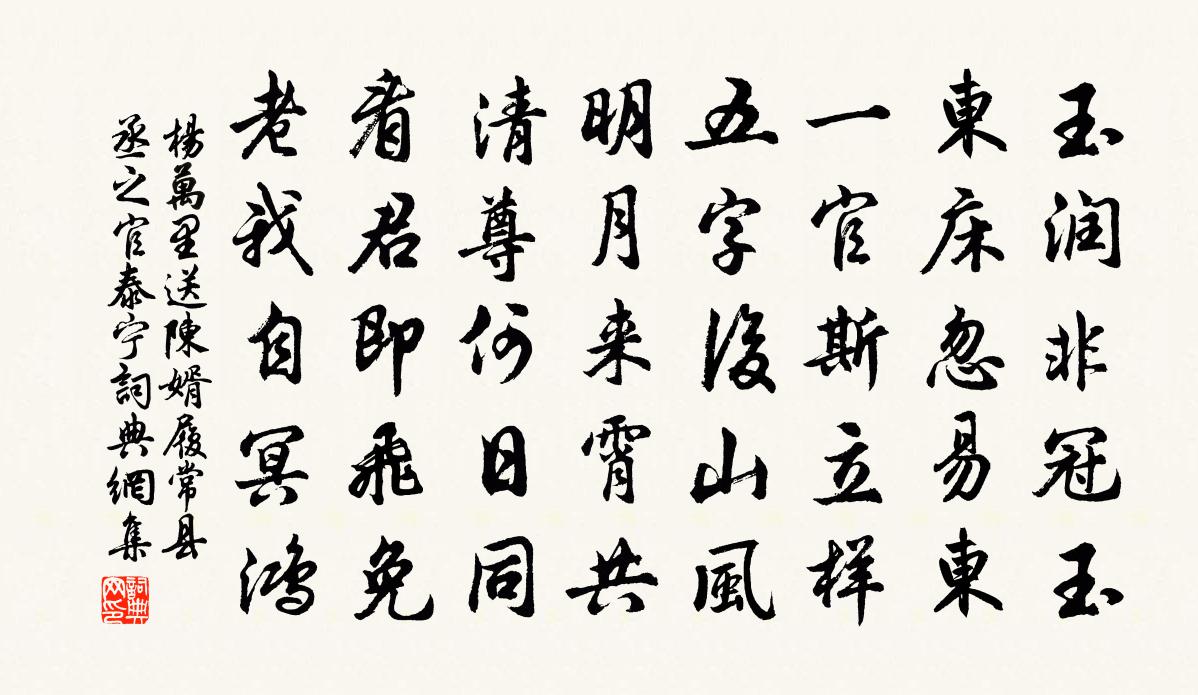 玉润非冠玉
東床忽易東
一官斯立样
五字後山風
明月来霄共
清尊何日同
看君即飛免
老我自冥鸿
楊萬里送陳婿履常县
丞之官泰宁詞典網集
詞典
网印